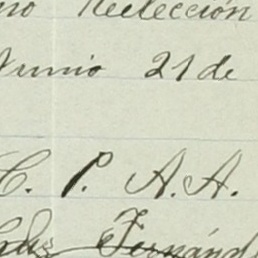 no Reelección
Junio 21 de
C. P. A. A.
Fernánd